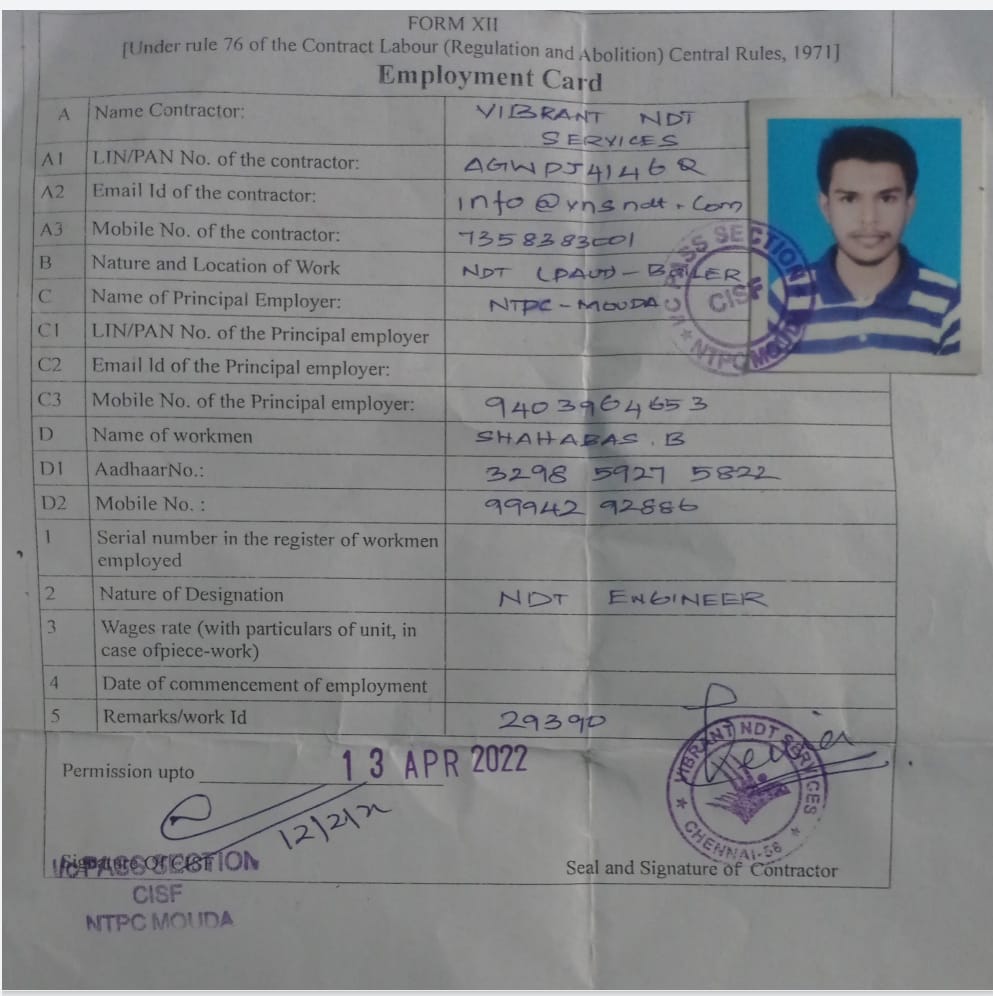 FORM XII
[Under rule 76 of the Contract Labour (Regulation and Abolition) Central Rules, 1971]
Employment Card
A Name Contractor: VIBRANT NDT
SERVICES
A1 LIN/PAN No. of the contractor: AGWPJ4146Q
A2 Email Id of the contractor: info@vnsndt.com
A3 Mobile No. of the contractor: 7358383001
B Nature and Location of Work NDT (PAUT) - BOILER
C Name of Principal Employer: NTPC - MOUDA
C1 LIN/PAN No. of the Principal employer
C2 Email Id of the Principal employer:
C3 Mobile No. of the Principal employer: 9403964653
D Name of workmen SHAHABAS . B
D1 AadhaarNo.: 3298 5927 5822
D2 Mobile No. : 99942 92886
1 Serial number in the register of workmen
employed
2 Nature of Designation NDT ENGINEER
3 Wages rate (with particulars of unit, in
case ofpiece-work)
4 Date of commencement of employment
5 Remarks/work Id 29390
I/C PASS SECTION
CISF
NTPC MOUDA
Permission upto 13 APR 2022
VIBRANT NDT SERVICES
CHENNAI-56
Signature Of CISF
Seal and Signature of Contractor
I/C PASS SECTION
CISF
NTPC MOUDA